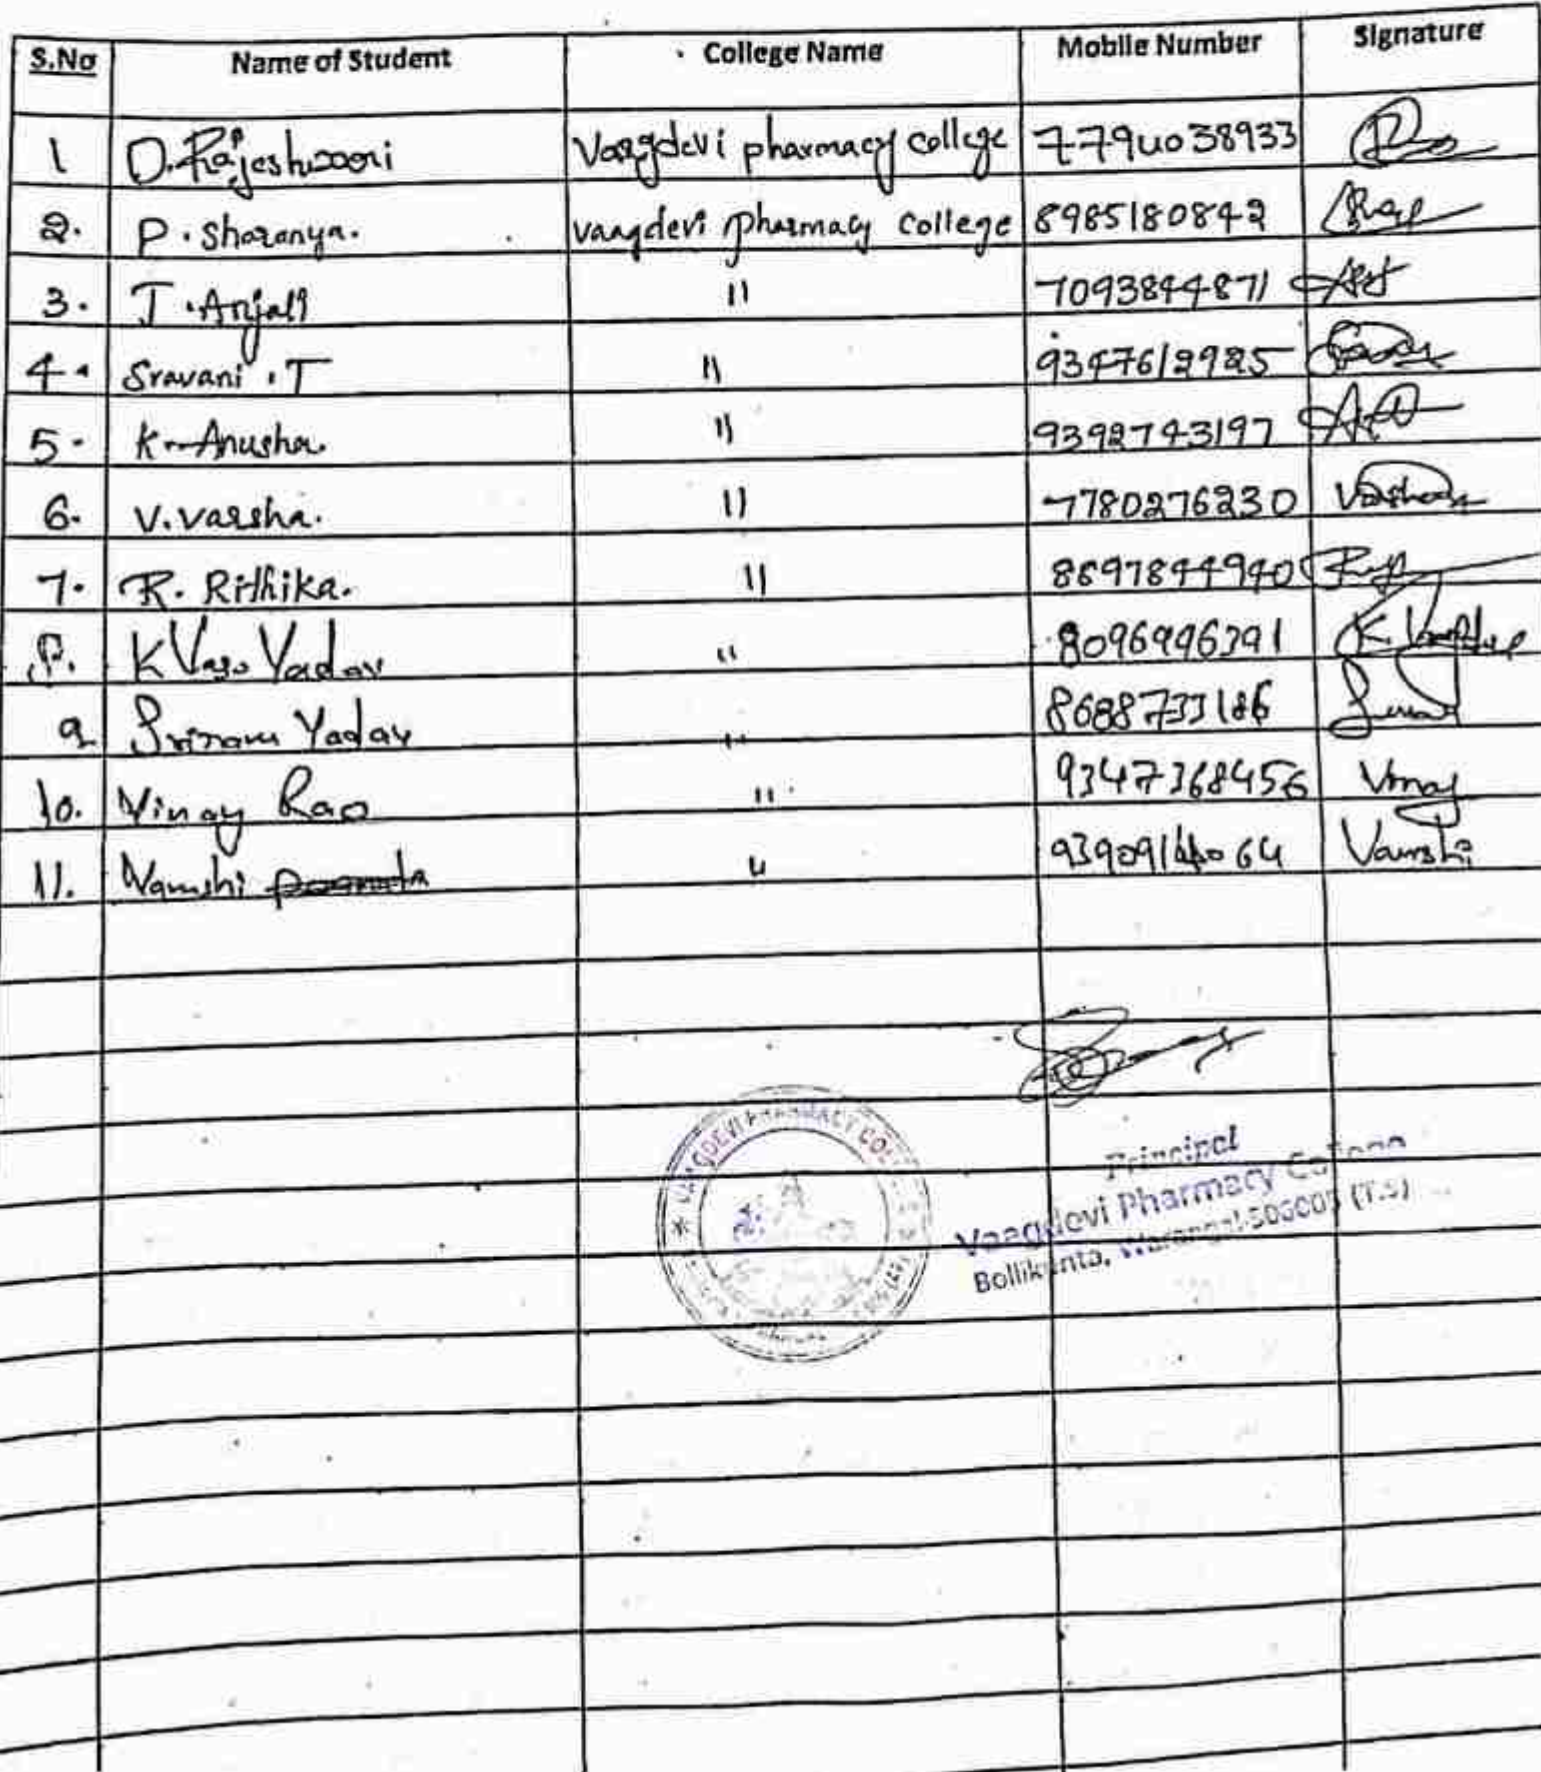 S.No Name of Student College Name Mobile Number Signature
1 D. Rajeshwari Vaagdevi pharmacy college 7794038933
2. P. Sharanya. vaagdevi pharmacy college 8985180842
3. J. Anjali 11 7093844871
4. Sravani . T 11 9347612925
5. K. Anusha. 11 9392743197
6. V. varsha. 11 7780276230 Varsha
7. R. Rithika. 11 8897844940
8. K Vasu Yadav 11 8096996391
9 Sriram Yadav 11 8688733186
10. Vinay Rao 11 9347368456 Vinay
11. Vamshi 11 Vamshi
VAAGDEVI PHARMACY COLLEGE
Principal
Vaagdevi Pharmacy College
Bollikunta, Warangal-506005 (T.S)